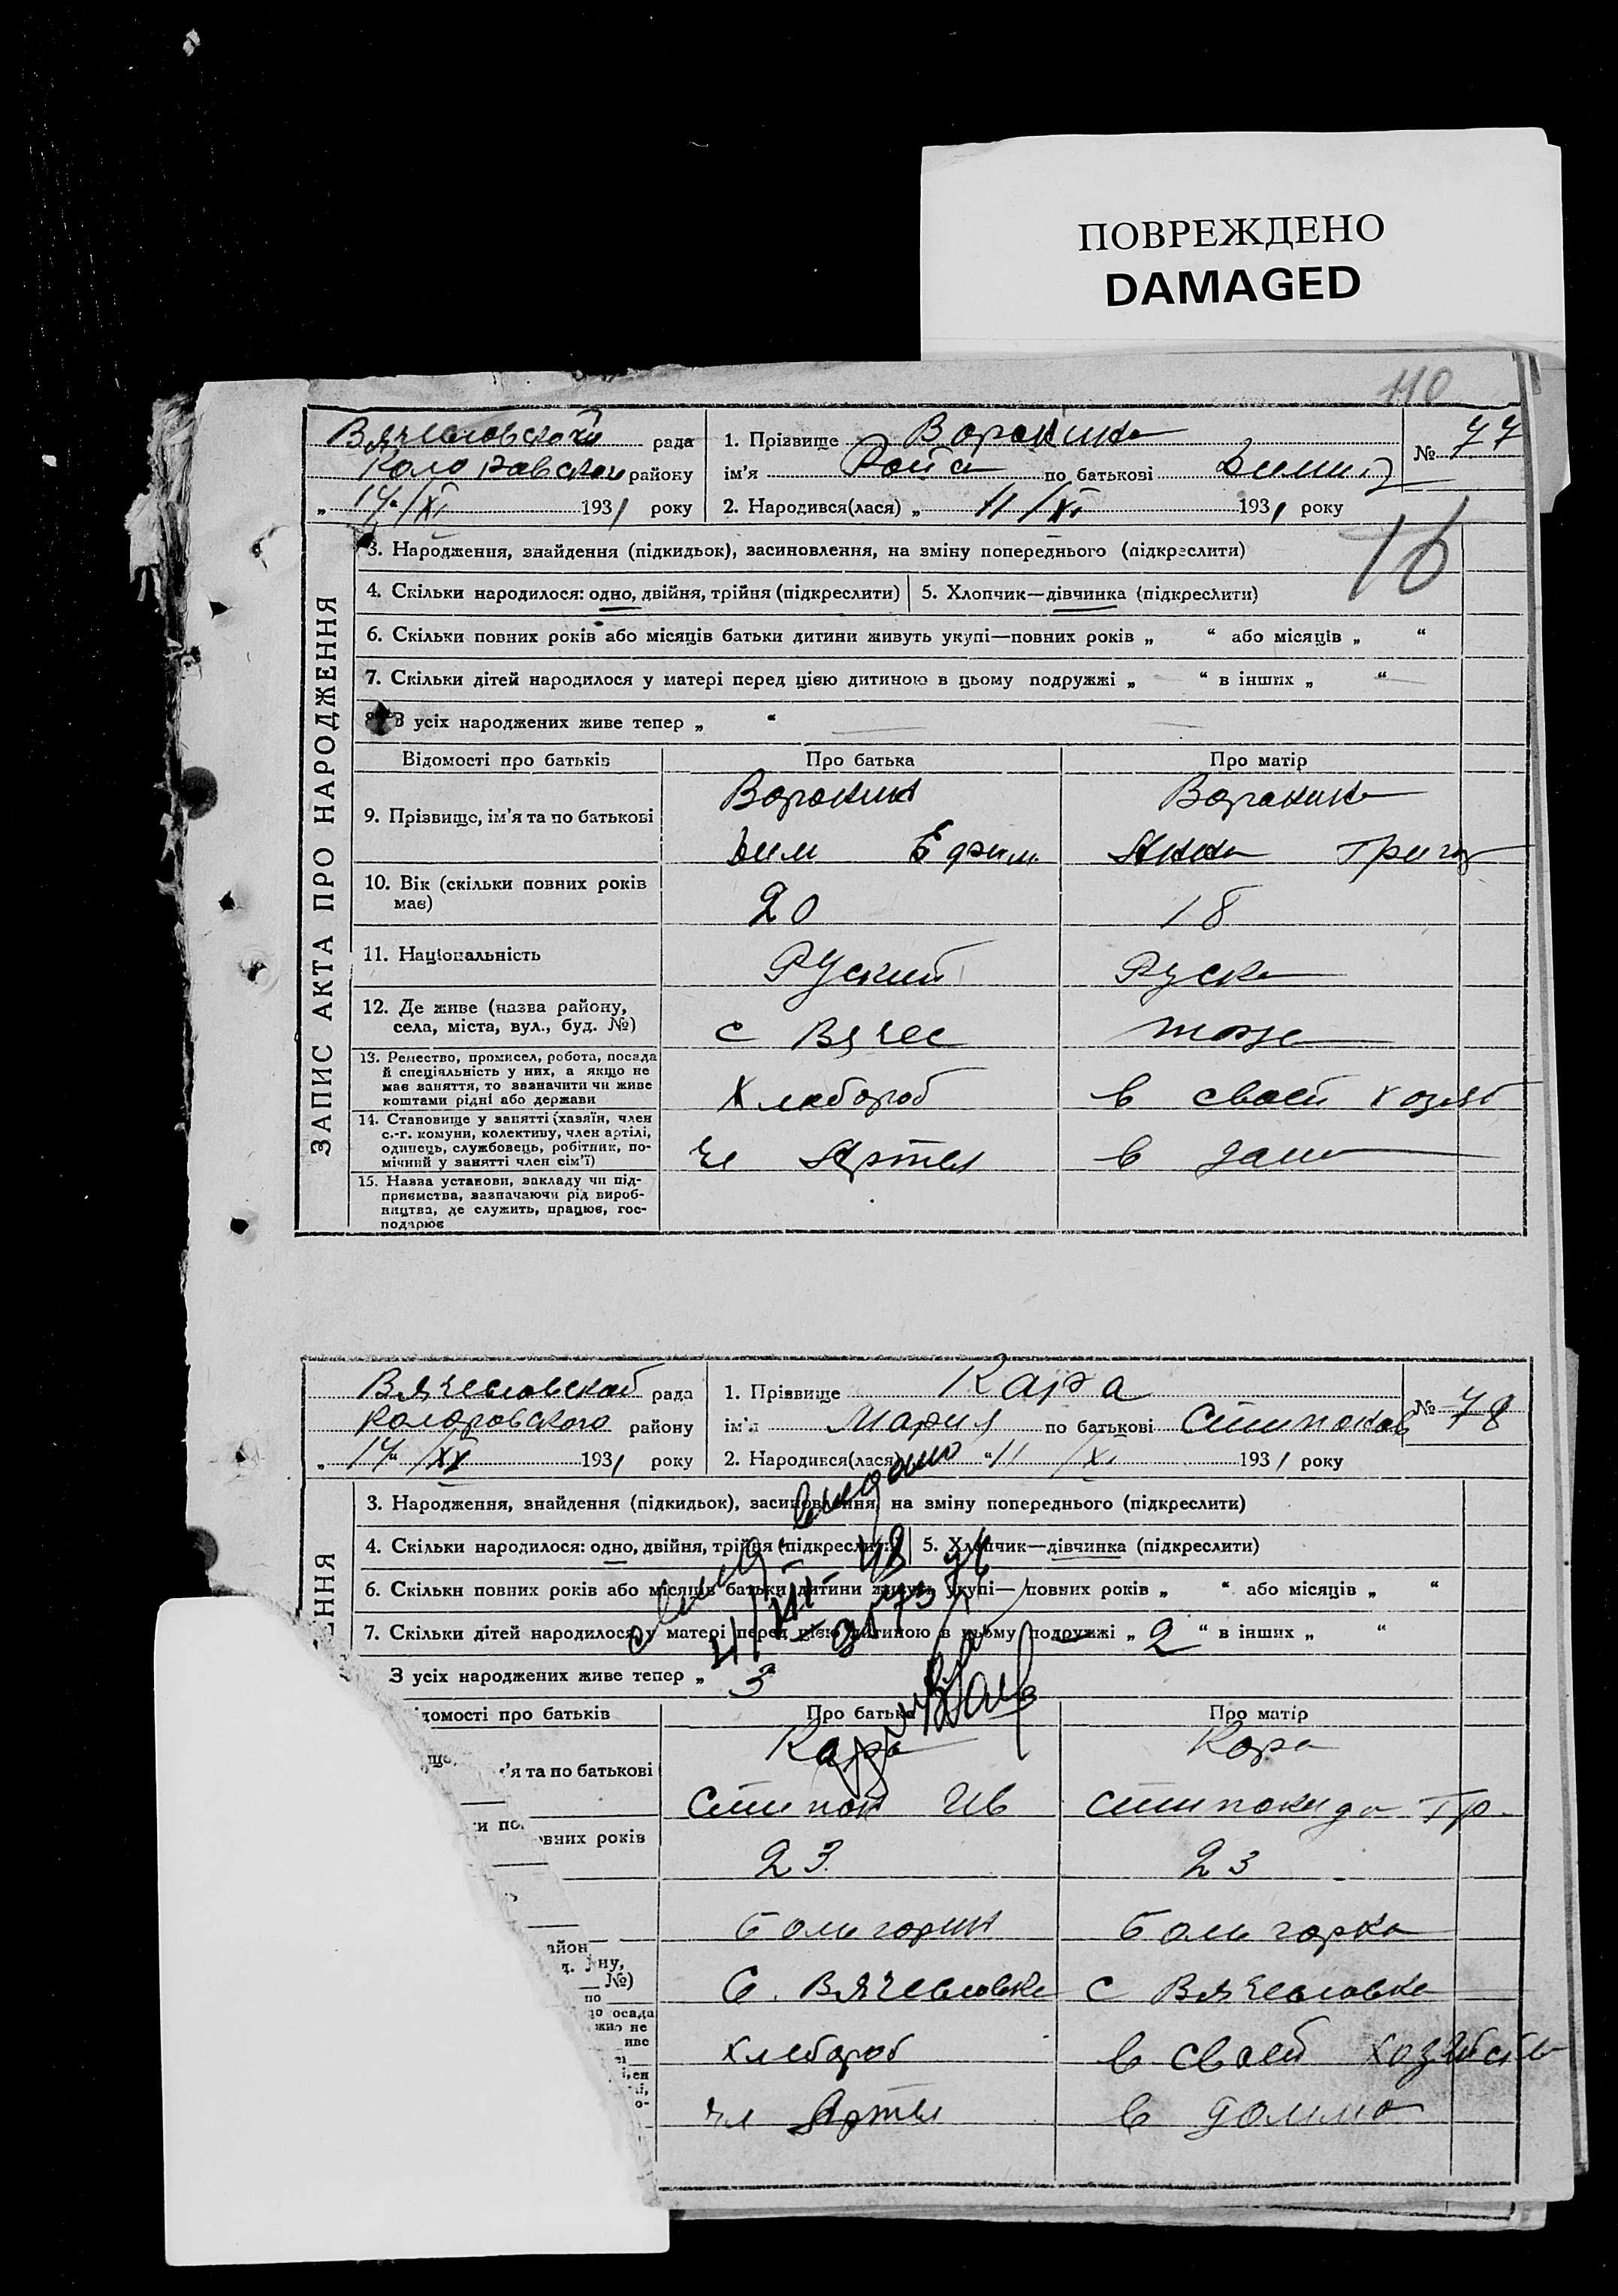 ПОВРЕЖДЕНО
DAMAGED
110
Вячеславской рада
Коларовском району
„ 14/XI 1931 року
1. Прізвище Воронина
ім'я Раиса по батькові Дими
№ 77
2. Народився(лася) „ 11/XI 1931 року
16
ЗАПИС АКТА ПРО НАРОДЖЕННЯ
3. Народження, знайдення (підкидьок), засиновлення, на зміну попереднього (підкреслити)
4. Скільки народилося: одно, двійня, трійня (підкреслити) 5. Хлопчик—дівчинка (підкреслити)
6. Скільки повних років або місяців батьки дитини живуть укупі—повних років „ “ або місяців „ “
7. Скільки дітей народилося у матері перед цією дитиною в цьому подружжі „ — “ в інших „ “
З усіх народжених живе тепер „ “
Відомості про батьків Про батька Про матір
9. Прізвище, ім'я та по батькові
Воронин Воронина
Дим Ефрим Анна Григ
10. Вік (скільки повних років має) 20 18
11. Національність Руский Руска
12. Де живе (назва району, села, міста, вул., буд. №) с Вячес тоже
13. Ремество, промисел, робота, посада й спеціяльність у них, а якщо не має заняття, то зазначити чи живе коштами рідні або держави
Хлебороб в своей хозяй
14. Становище у занятті (хазяїн, член с.-г. комуни, колективу, член артілі, одинець, службовець, робітник, помічний у занятті член сім'ї)
чл Артел в дом
15. Назва установи, закладу чи підприємства, зазначаючи рід виробництва, де служить, працює, господарює
Вячеславской рада
Коларовского району
„ 14/XI 1931 року
1. Прізвище Кара
ім'я Мария по батькові Стипанов
№ 78
2. Народився(лася) “ 11/XI 1931 року
ЕННЯ
3. Народження, знайдення (підкидьок), засиновлення, на зміну попереднього (підкреслити)
4. Скільки народилося: одно, двійня, трійня (підкреслити) 5. Хлопчик—дівчинка (підкреслити)
6. Скільки повних років або місяців батьки дитини живуть укупі— повних років „ “ або місяців „ “
7. Скільки дітей народилося у матері перед цією дитиною в цьому подружжі „ 2 “ в інших „ “
З усіх народжених живе тепер „ 3
домості про батьків Про батька Про матір
'я та по батькові
Кара Кара
Стипан Ив Стипанида Гр.
вних років 23 23
Болгорин Болгорка
С. Вячеславка с Вячеславка
Хлебороб в своей хозяйств
чл Артел в домма